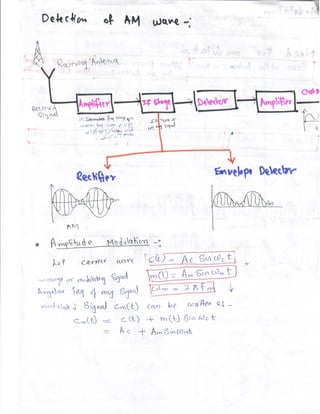 Detection of AM wave -:
Receiving Antenna
Received Signal
Amplifier
IF Stage
Detector
Amplifier
Rectifier
Envelope Detector
* Amplitude Modulation -:
Let carrier wave c(t) = Ac Sin ωc t
message or modulating Signal m(t) = Am Sin ωm t
Angular freq of msg Signal ωm = 2πfm
modulated Signal Cm(t) can be written as -
Cm(t) = c(t) + m(t) Sin ωc t
= Ac + Am Sin ωm t